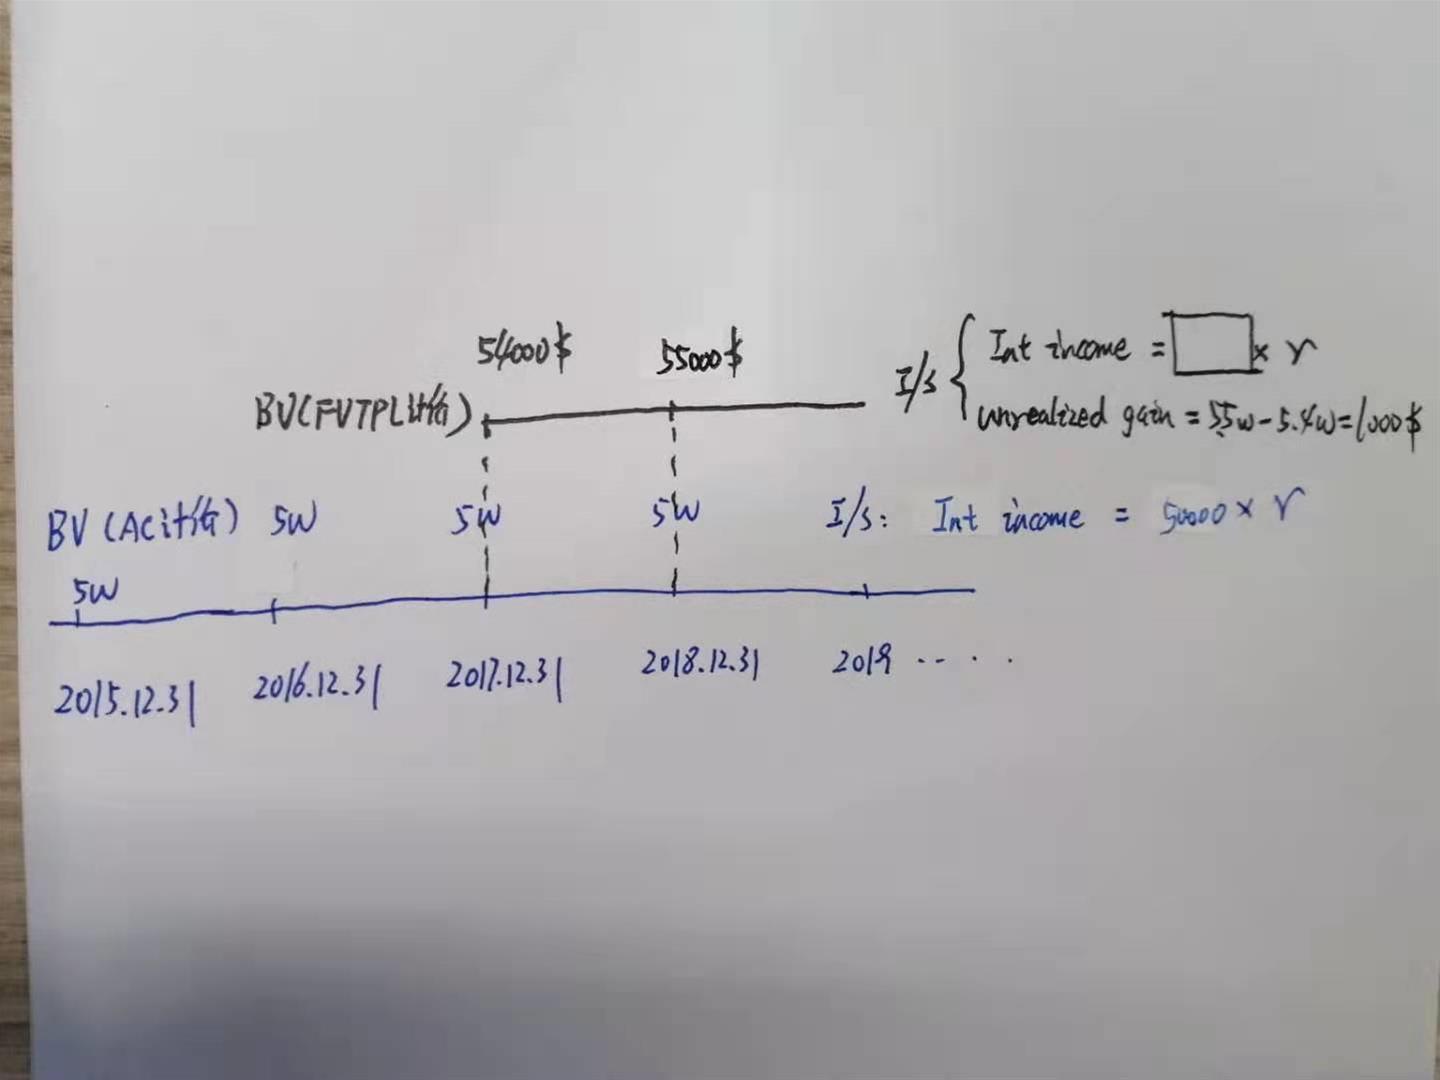 54000$ 55000$
I/S { Int income = □ × r
BV(FVTPL计价) unrealized gain = 5.5W - 5.4W = 1000$
BV (AC计价) 5W 5W 5W I/S: Int income = 50000 × r
5W
2015.12.31 2016.12.31 2017.12.31 2018.12.31 2019 ....